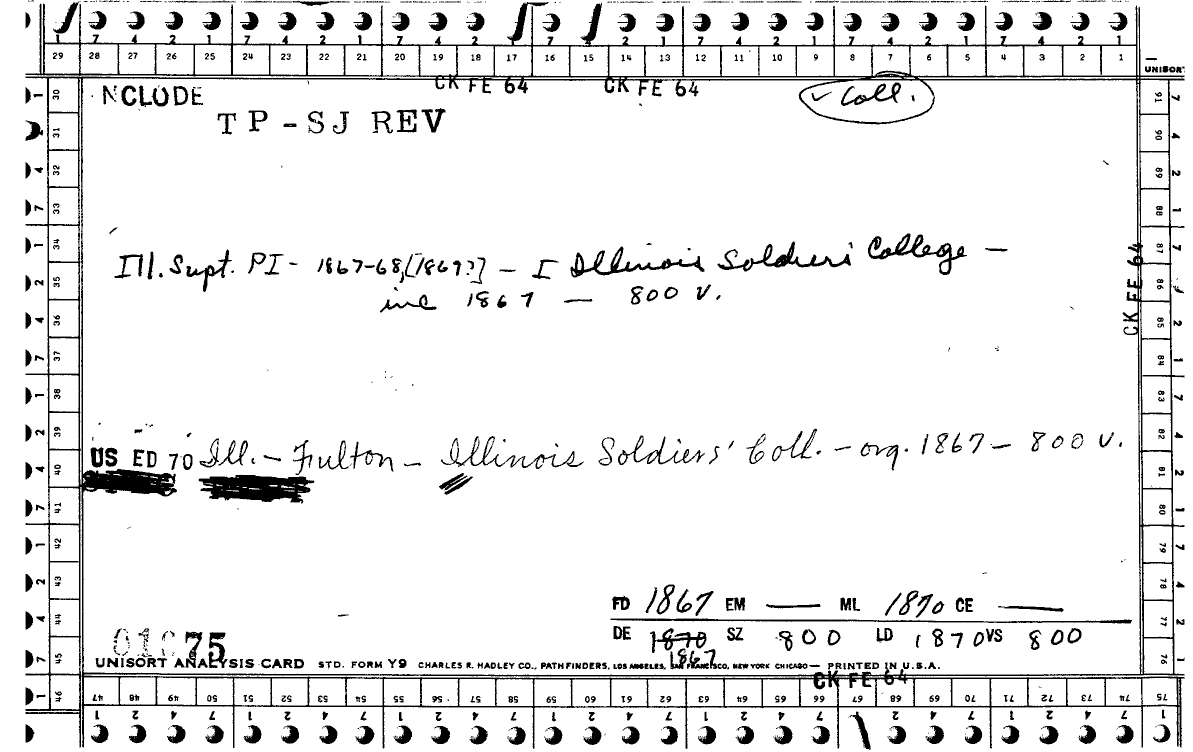 7 4 2 1 7 4 2 1 7 4 2 1 7 4 2 1 7 4 2 1 7 4 2 1 7 4 2 1
29 28 27 26 25 24 23 22 21 20 19 18 17 16 15 14 13 12 11 10 9 8 7 6 5 4 3 2 1
UNISORT
CK FE 64 CK FE 64
NCLUDE
✓ Coll.
TP-SJ REV
Ill. Supt. PI - 1867-68, [1869?] - I Illinois Soldiers' College -
inc 1867 — 800 V.
CK FE 64
US ED 70 Ill. - Fulton - Illinois Soldiers' Coll. - org. 1867 - 800 V.
FD 1867 EM — ML 1870 CE —
DE 1870 SZ 800 LD 1870 VS 800
1867
75
UNISORT ANALYSIS CARD STD. FORM Y9 CHARLES R. HADLEY CO., PATHFINDERS, LOS ANGELES, SAN FRANCISCO, NEW YORK CHICAGO — PRINTED IN U.S.A.
CK FE 64
30 31 32 33 34 35 36 37 38 39 40 41 42 43 44 45 46
47 48 49 50 51 52 53 54 55 56 57 58 59 60 61 62 63 64 65 66 67 68 69 70 71 72 73 74 75
76 77 78 79 80 81 82 83 84 85 86 87 88 89 90 91